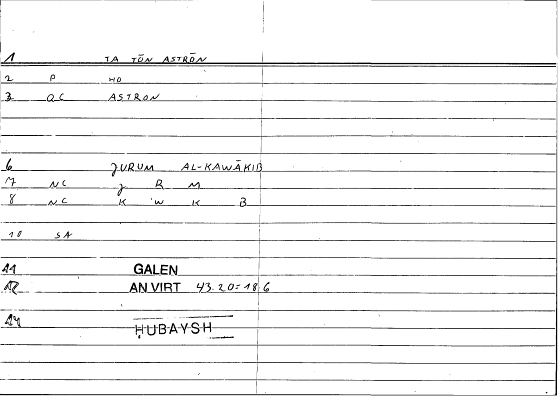 1 TA TŌN ASTRŌN
2 P HO
3 QC ASTRON
6 ǦURUM AL-KAWĀKIB
7 NC Ǧ R M
8 NC K W K B
10 SA
11 GALEN
12 AN VIRT 43.20=18.6
14 ḤUBAYSH